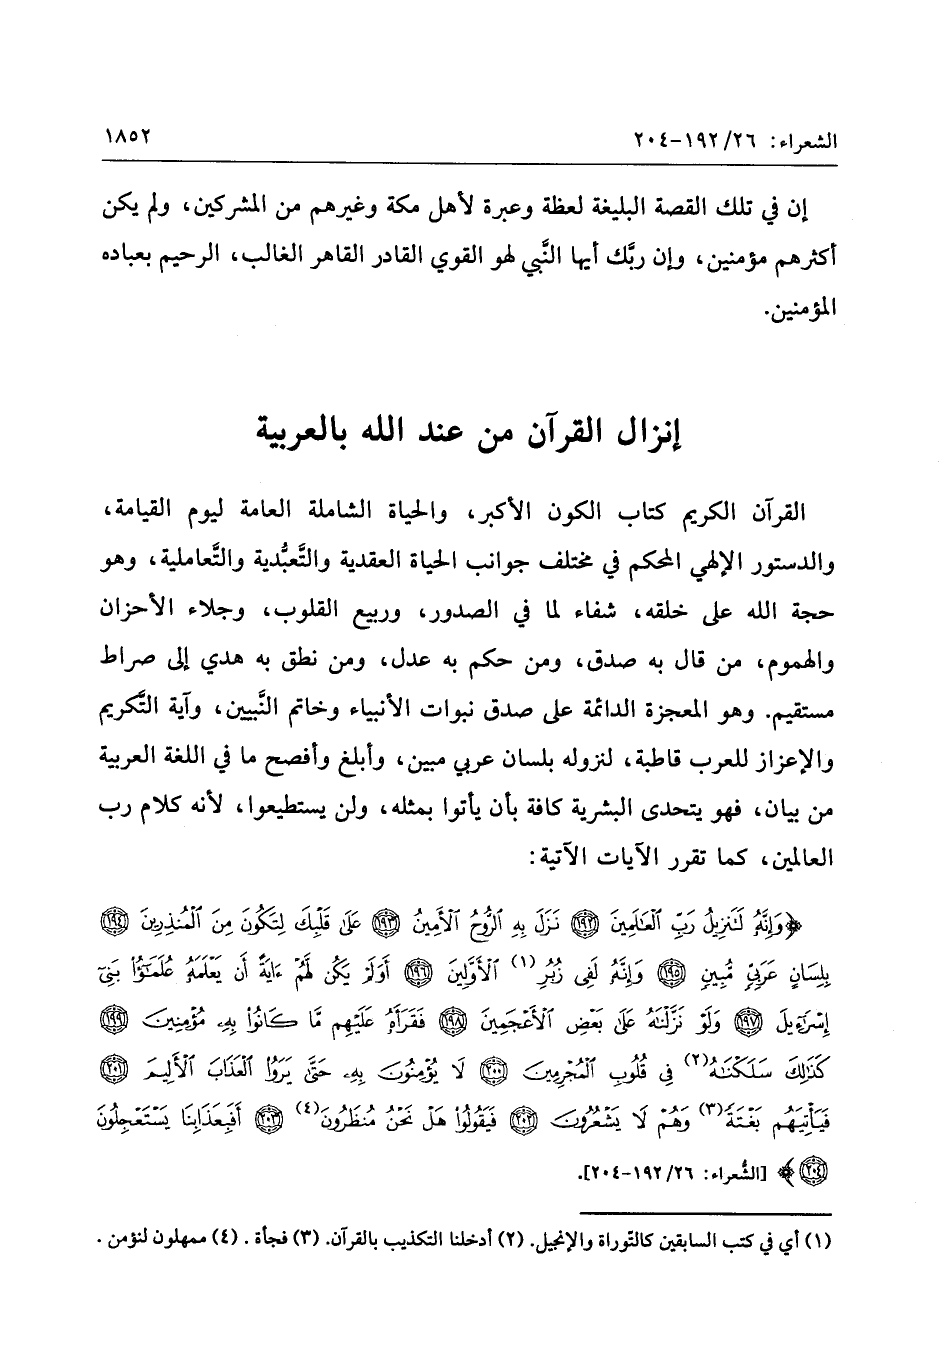 الشعراء: ٢٦/ ١٩٢-٢٠٤
١٨٥٢
إن في تلك القصة البليغة لعظة وعبرة لأهل مكة وغيرهم من المشركين، ولم يكن
أكثرهم مؤمنين، وإن ربَّك أيها النَّبي لهو القوي القادر القاهر الغالب، الرحيم بعباده
المؤمنين.
إنزال القرآن من عند الله بالعربية
القرآن الكريم كتاب الكون الأكبر، والحياة الشاملة العامة ليوم القيامة،
والدستور الإلهي المحكم في مختلف جوانب الحياة العقدية والتَّعبُّدية والتَّعاملية، وهو
حجة الله على خلقه، شفاء لما في الصدور، وربيع القلوب، وجلاء الأحزان
والهموم، من قال به صدق، ومن حكم به عدل، ومن نطق به هدي إلى صراط
مستقيم. وهو المعجزة الدائمة على صدق نبوات الأنبياء وخاتم النَّبيين، وآية التَّكريم
والإعزاز للعرب قاطبة، لنزوله بلسان عربي مبين، وأبلغ وأفصح ما في اللغة العربية
من بيان، فهو يتحدى البشرية كافة بأن يأتوا بمثله، ولن يستطيعوا، لأنه كلام رب
العالمين، كما تقرر الآيات الآتية:
﴿وَإِنَّهُۥ لَنَنزِيلُ رَبِّ ٱلۡعَٰلَمِينَ ١٩٢ نَزَلَ بِهِ ٱلرُّوحُ ٱلۡأَمِينُ ١٩٣ عَلَىٰ قَلۡبِكَ لِتَكُونَ مِنَ ٱلۡمُنذِرِينَ ١٩٤
بِلِسَانٍ عَرَبِيّٖ مُّبِينٖ ١٩٥ وَإِنَّهُۥ لَفِي زُبُرِ(١) ٱلۡأَوَّلِينَ ١٩٦ أَوَلَمۡ يَكُن لَّهُمۡ ءَايَةً أَن يَعۡلَمَهُۥ عُلَمَٰٓؤُاْ بَنِيٓ
إِسۡرَٰٓءِيلَ ١٩٧ وَلَوۡ نَزَّلۡنَٰهُ عَلَىٰ بَعۡضِ ٱلۡأَعۡجَمِينَ ١٩٨ فَقَرَأَهُۥ عَلَيۡهِم مَّا كَانُواْ بِهِۦ مُؤۡمِنِينَ ١٩٩
كَذَٰلِكَ سَلَكۡنَٰهُ(٢) فِي قُلُوبِ ٱلۡمُجۡرِمِينَ ٢٠٠ لَا يُؤۡمِنُونَ بِهِۦ حَتَّىٰ يَرَوُاْ ٱلۡعَذَابَ ٱلۡأَلِيمَ ٢٠١
فَيَأۡتِيَهُم بَغۡتَةٗ(٣) وَهُمۡ لَا يَشۡعُرُونَ ٢٠٢ فَيَقُولُواْ هَلۡ نَحۡنُ مُنظَرُونَ(٤) ٢٠٣ أَفَبِعَذَابِنَا يَسۡتَعۡجِلُونَ
٢٠٤﴾ [الشُّعراء: ٢٦/ ١٩٢-٢٠٤].
(١) أي في كتب السابقين كالتَّوراة والإنجيل. (٢) أدخلنا التكذيب بالقرآن. (٣) فجأة . (٤) ممهلون لنؤمن .